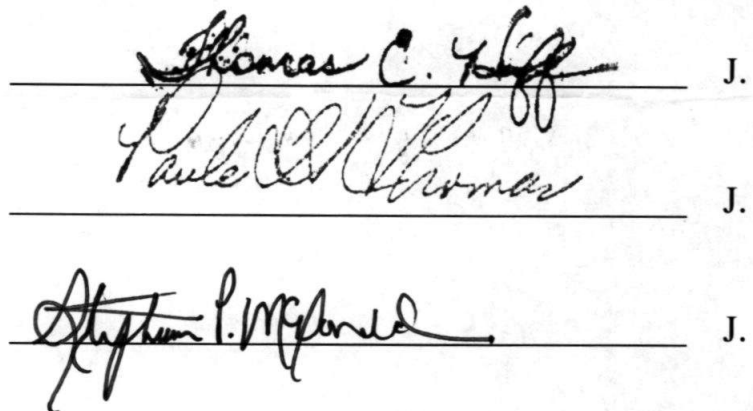 Thomas C. Huff J.
Paula A. Thomas J.
Stephen P. McDonald J.